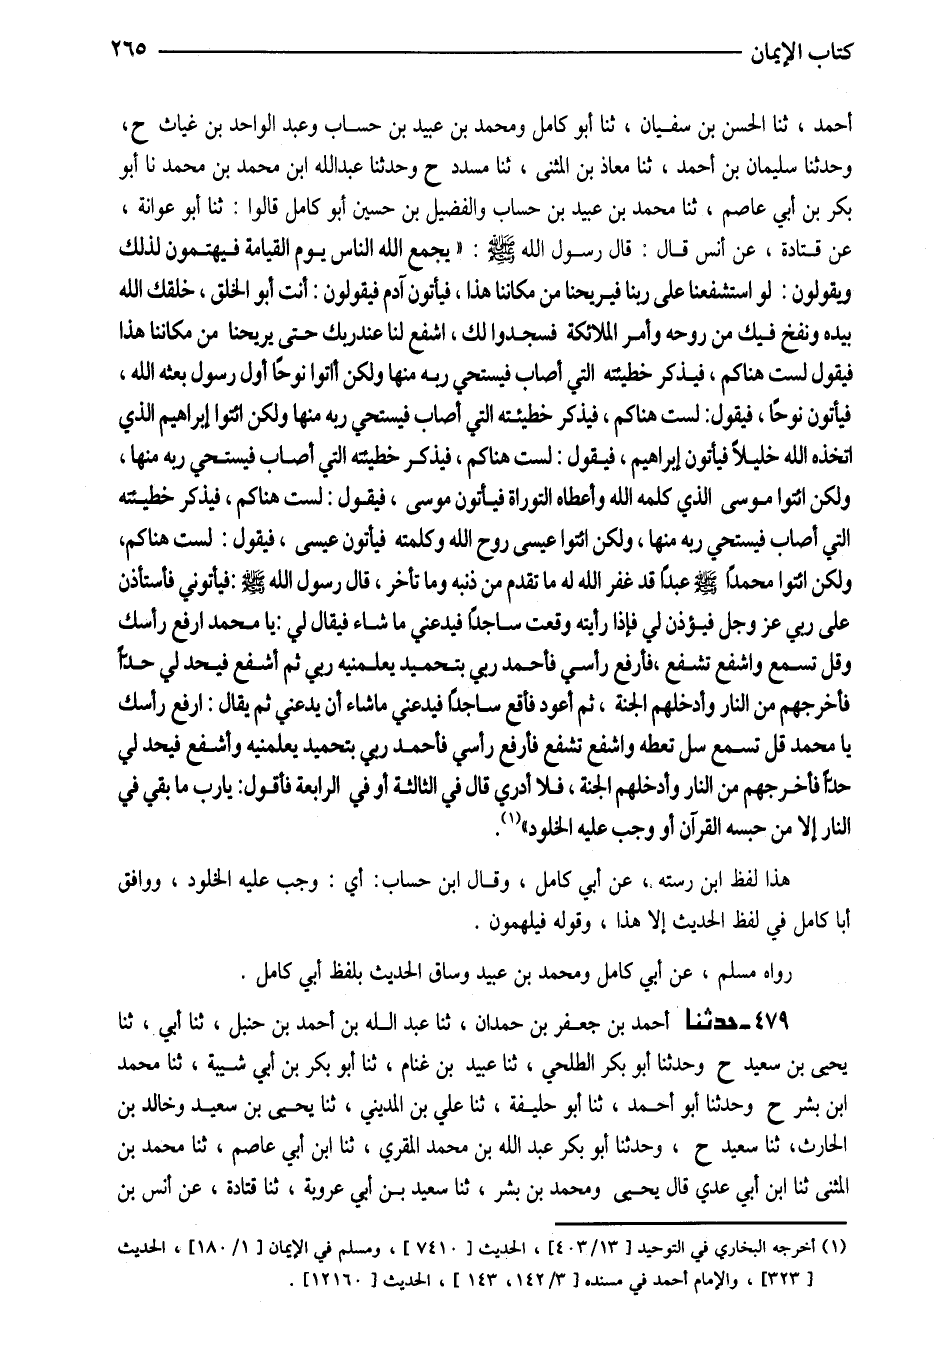 كتاب الإيمان ٢٦٥
أحمد ، ثنا الحسن بن سفيان ، ثنا أبو كامل ومحمد بن عبيد بن حساب وعبد الواحد بن غياث ح ،
وحدثنا سليمان بن أحمد ، ثنا معاذ بن المثنى ، ثنا مسدد ح وحدثنا عبدالله ابن محمد بن محمد نا أبو
بكر بن أبي عاصم ، ثنا محمد بن عبيد بن حساب والفضيل بن حسين أبو كامل قالوا : ثنا أبو عوانة ،
عن قتادة ، عن أنس قال : قال رسول الله ﷺ : « يجمع الله الناس يوم القيامة فيهتمون لذلك
ويقولون : لو استشفعنا على ربنا فيريحنا من مكاننا هذا ، فيأتون آدم فيقولون : أنت أبو الخلق ، خلقك الله
بيده ونفخ فيك من روحه وأمر الملائكة فسجدوا لك ، اشفع لنا عندربك حتى يريحنا من مكاننا هذا
فيقول لست هناكم ، فيذكر خطيئته التي أصاب فيستحي ربه منها ولكن أأتوا نوحًا أول رسول بعثه الله ،
فيأتون نوحًا ، فيقول: لست هناكم ، فيذكر خطيئته التي أصاب فيستحي ربه منها ولكن ائتوا إبراهيم الذي
اتخذه الله خليلاً فيأتون إبراهيم ، فيقول : لست هناكم ، فيذكر خطيئته التي أصاب فيستحي ربه منها ،
ولكن ائتوا موسى الذي كلمه الله وأعطاه التوراة فيأتون موسى ، فيقول : لست هناكم ، فيذكر خطيئته
التي أصاب فيستحي ربه منها ، ولكن ائتوا عيسى روح الله وكلمته فيأتون عيسى ، فيقول : لست هناكم،
ولكن ائتوا محمدًا ﷺ عبدًا قد غفر الله له ما تقدم من ذنبه وما تأخر ، قال رسول الله ﷺ :فيأتوني فأستأذن
على ربي عز وجل فيؤذن لي فإذا رأيته وقعت ساجدًا فيدعني ما شاء فيقال لي :يا محمد ارفع رأسك
وقل تسمع واشفع تشفع ،فأرفع رأسي فأحمد ربي بتحميد يعلمنيه ربي ثم أشفع فيحد لي حدًّا
فأخرجهم من النار وأدخلهم الجنة ، ثم أعود فأقع ساجدًا فيدعني ماشاء أن يدعني ثم يقال : ارفع رأسك
يا محمد قل تسمع سل تعطه واشفع تشفع فأرفع رأسي فأحمد ربي بتحميد يعلمنيه وأشفع فيحد لي
حدًّا فأخرجهم من النار وأدخلهم الجنة ، فلا أدري قال في الثالثة أو في الرابعة فأقول: يارب ما بقي في
النار إلا من حبسه القرآن أو وجب عليه الخلود»(١).
هذا لفظ ابن رسته ، عن أبي كامل ، وقال ابن حساب: أي : وجب عليه الخلود ، ووافق
أبا كامل في لفظ الحديث إلا هذا ، وقوله فيلهمون .
رواه مسلم ، عن أبي كامل ومحمد بن عبيد وساق الحديث بلفظ أبي كامل .
٤٧٩ـ حدثنا أحمد بن جعفر بن حمدان ، ثنا عبد الله بن أحمد بن حنبل ، ثنا أبي ، ثنا
يحيى بن سعيد ح وحدثنا أبو بكر الطلحي ، ثنا عبيد بن غنام ، ثنا أبو بكر بن أبي شيبة ، ثنا محمد
ابن بشر ح وحدثنا أبو أحمد ، ثنا أبو خليفة ، ثنا علي بن المديني ، ثنا يحيى بن سعيد وخالد بن
الحارث، ثنا سعيد ح ، وحدثنا أبو بكر عبد الله بن محمد المقري ، ثنا ابن أبي عاصم ، ثنا محمد بن
المثنى ثنا ابن أبي عدي قال يحيى ومحمد بن بشر ، ثنا سعيد بن أبي عروبة ، ثنا قتادة ، عن أنس بن
(١) أخرجه البخاري في التوحيد [ ٤٠٣/١٣] ، الحديث [ ٧٤١٠ ] ، ومسلم في الإيمان [ ١٨٠/١] ، الحديث
[ ٣٢٣] ، والإمام أحمد في مسنده [ ١٤٢/٣، ١٤٣ ] ، الحديث [ ١٢١٦٠ ] .